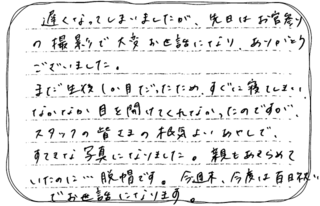 遅くなってしまいましたが、先日はお宮参り
の撮影で大変お世話になり、ありがとう
ございました。
まだ生後1か月だったため、すぐに寝てしまい、
なかなか目を開けてくれなかったのですが、
スタッフの皆さまの根気よいあやしで、
すてきな写真になりました。親もあきらめて
いたのに…脱帽です。今週末、今度は百日祝い
でお世話になります。